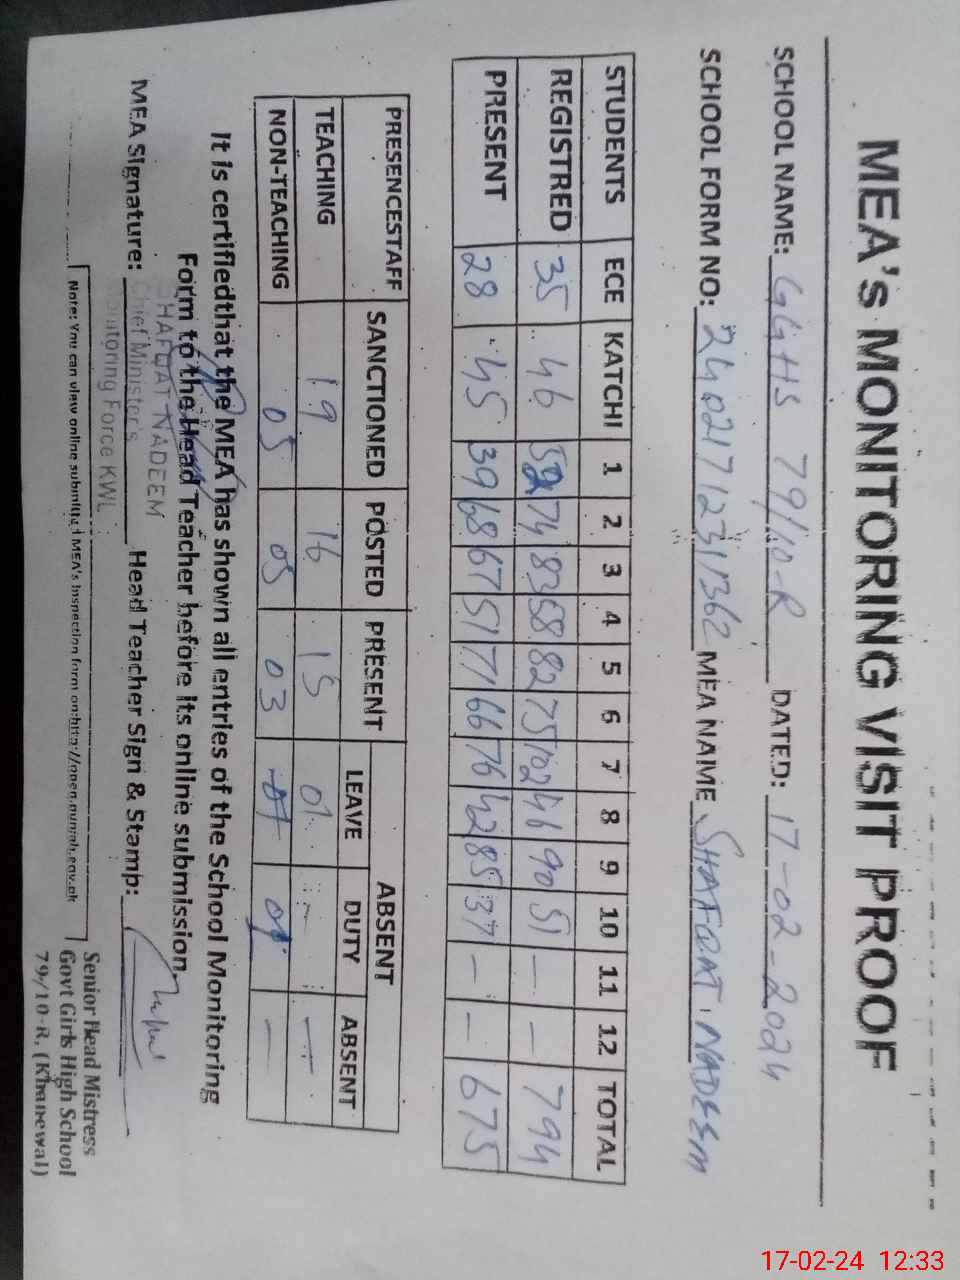 MEA's MONITORING VISIT PROOF
SCHOOL NAME: GGHS 79/10-R DATED: 17-02-2024
SCHOOL FORM NO: 24021712311362 MEA NAME SHAFQAT NADEEM
STUDENTS ECE KATCHI 1 2 3 4 5 6 7 8 9 10 11 12 TOTAL
REGISTRED 35 46 52 74 83 58 82 75 102 46 90 51 — — 794
PRESENT 28 45 39 68 67 51 71 66 76 42 85 37 — — 675
PRESENCESTAFF SANCTIONED POSTED PRESENT ABSENT
LEAVE DUTY ABSENT
TEACHING 19 16 15 01 — —
NON-TEACHING 05 05 03 —
It is certifiedthat the MEA has shown all entries of the School Monitoring
Form to the Head Teacher before its online submission.
SHAFQAT NADEEM
Chief Minister's
Monitoring Force KWL
MEA Signature: Head Teacher Sign & Stamp:
Note: You can view online submitted MEA's Inspection form on:http://open.punjab.gov.pk
Senior Head Mistress
Govt Girls High School
79/10-R, (Khanewal)
17-02-24 12:33